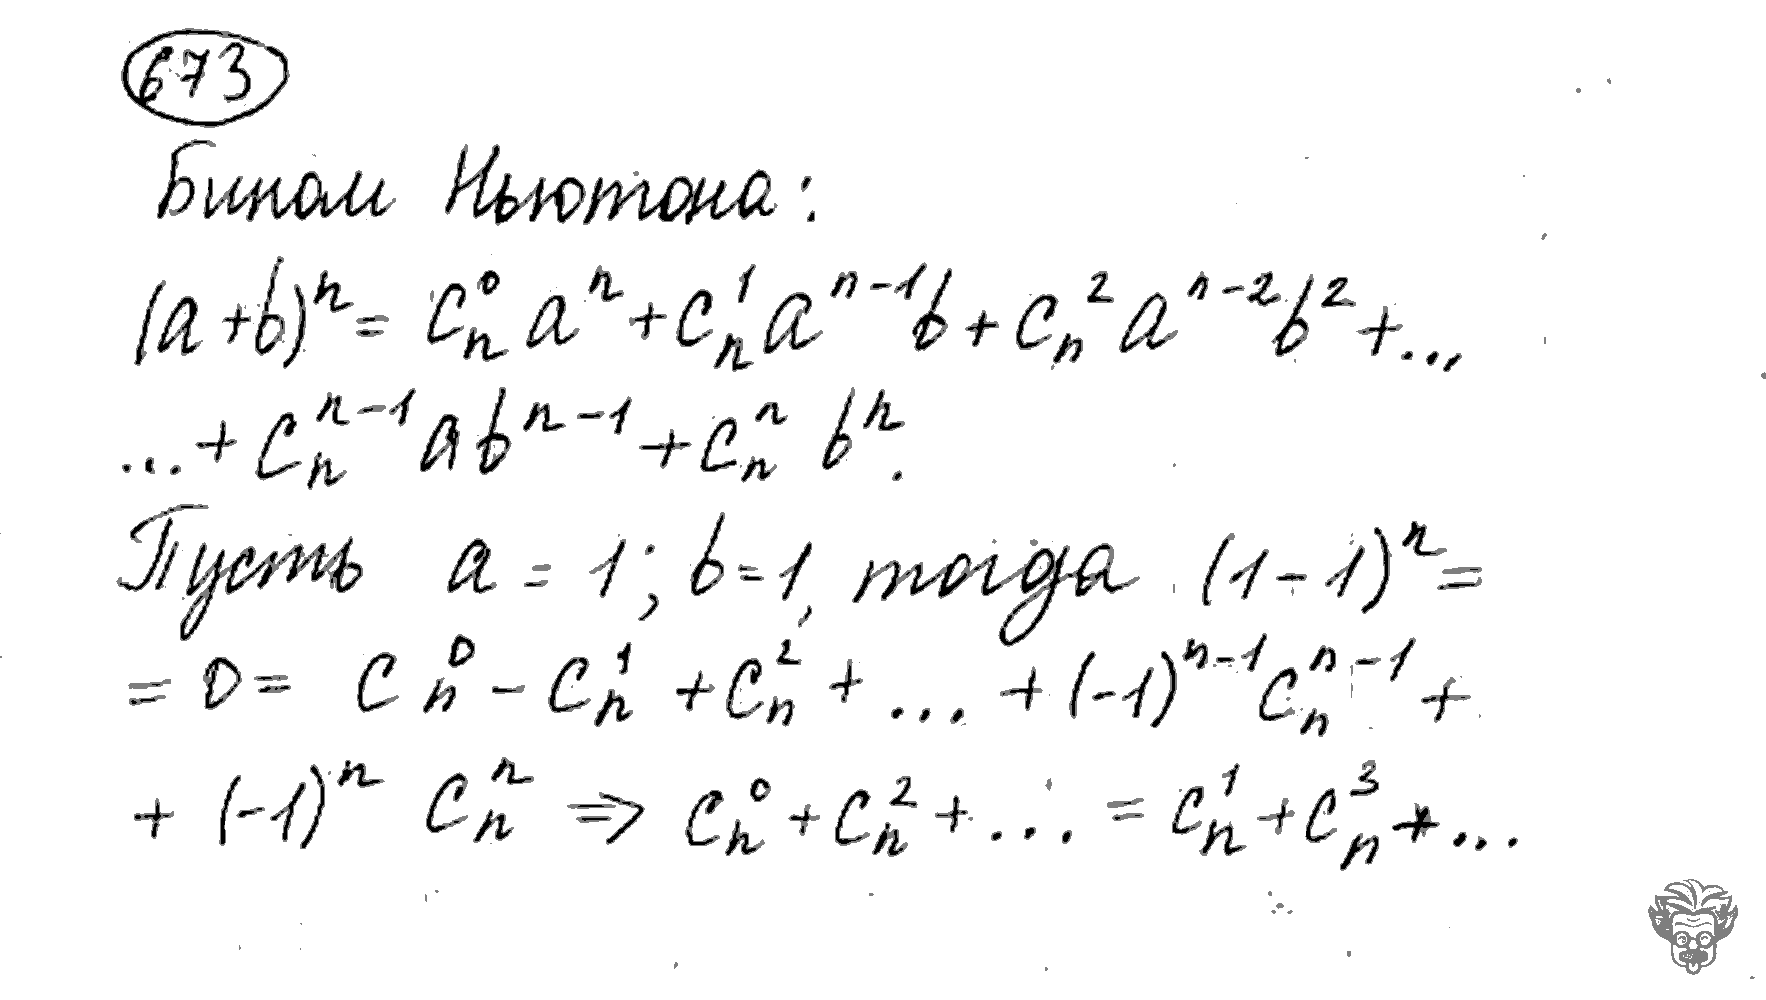 673
Бином Ньютона:
(a+b)^n = C_n^0 a^n + C_n^1 a^{n-1} b + C_n^2 a^{n-2} b^2 + ...,
... + C_n^{n-1} a b^{n-1} + C_n^n b^n.
Пусть a = 1; b = 1, тогда (1-1)^n =
= 0 = C_n^0 - C_n^1 + C_n^2 + ... + (-1)^{n-1} C_n^{n-1} +
+ (-1)^n C_n^n ⇒ C_n^0 + C_n^2 + ... = C_n^1 + C_n^3 + ...